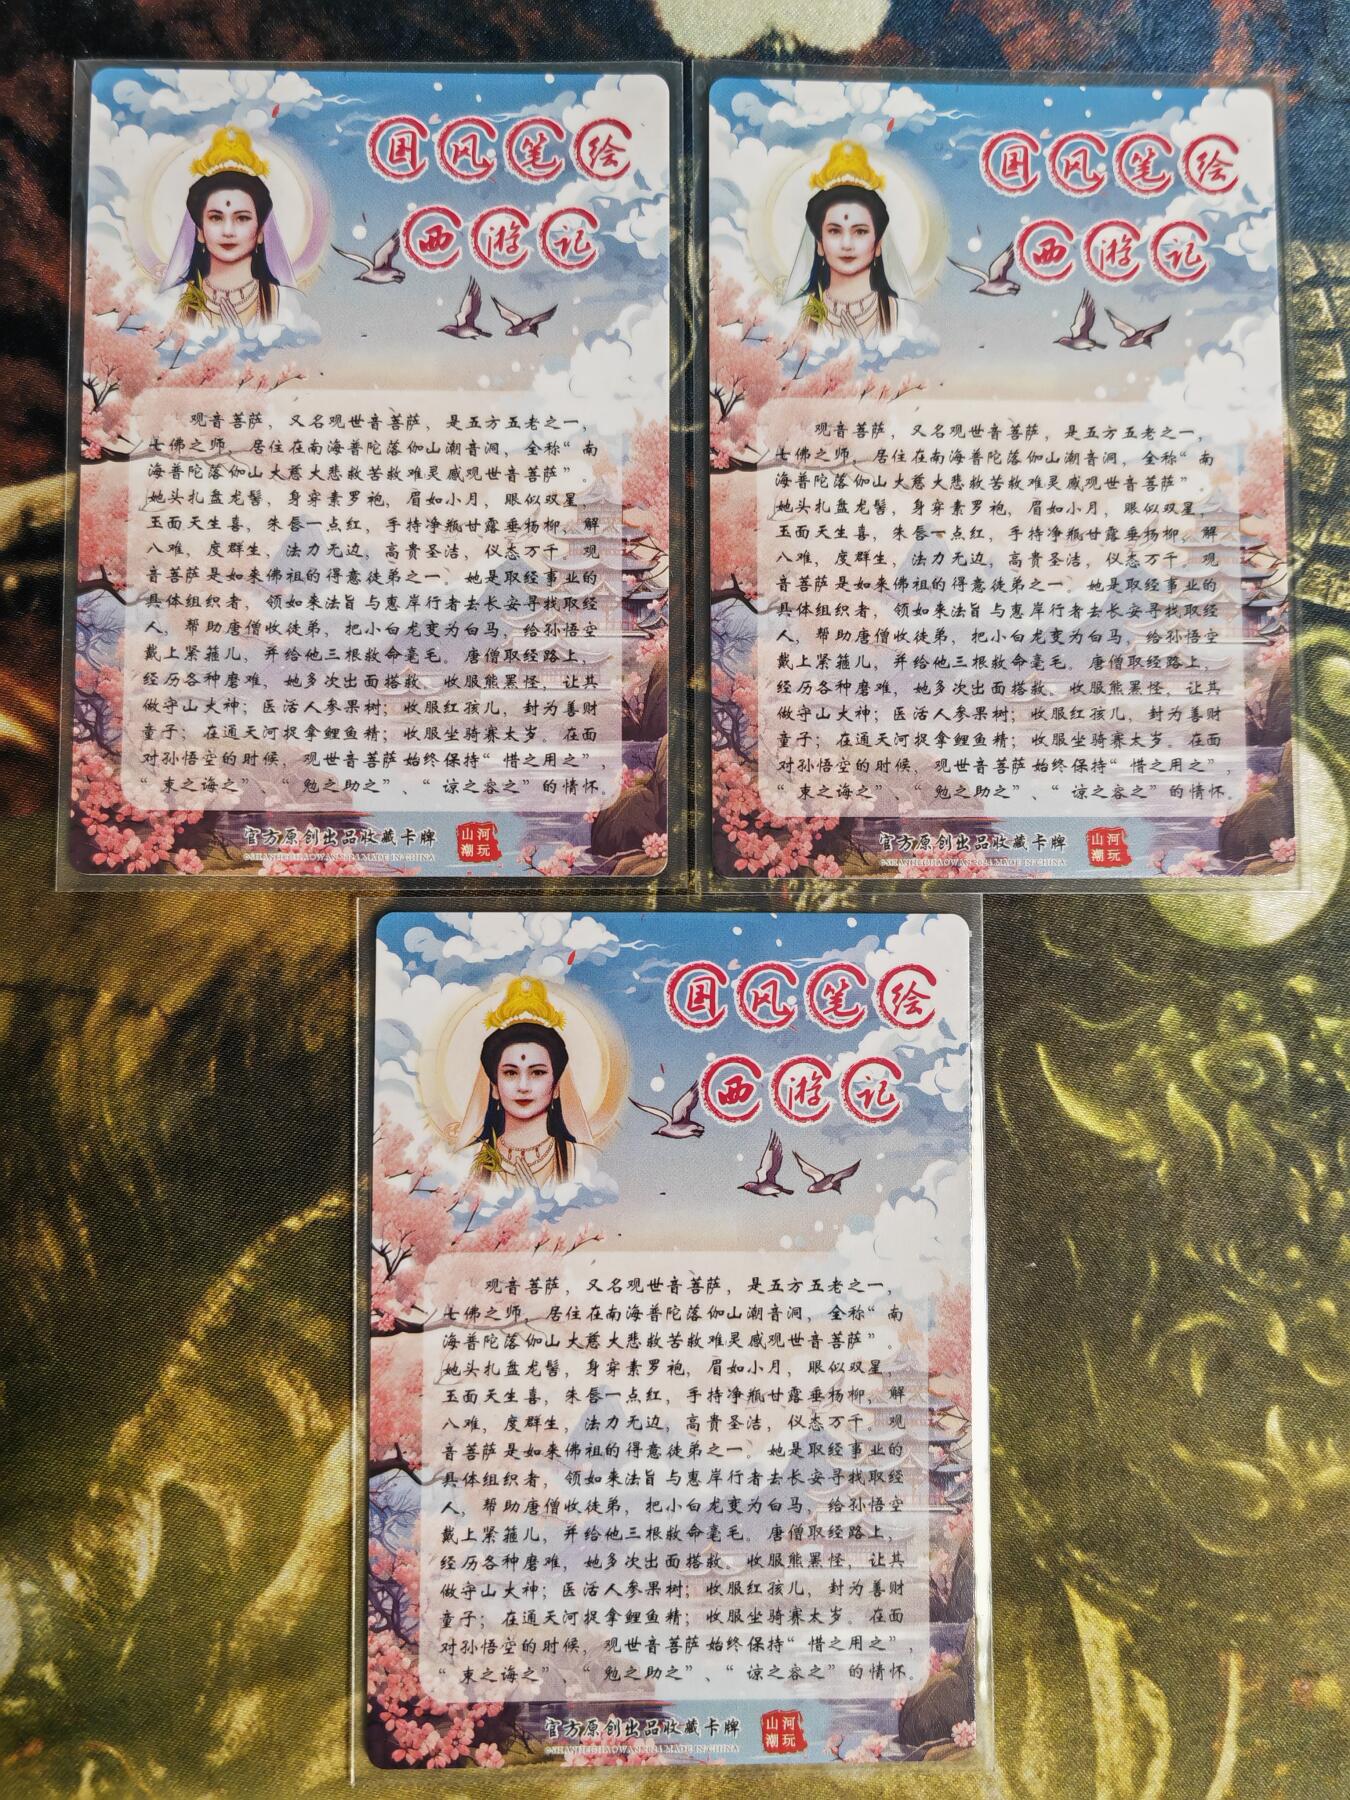 国风笔绘
西游记
观音菩萨，又名观世音菩萨，是五方五老之一，
七佛之师，居住在南海普陀落伽山潮音洞，全称“南
海普陀落伽山大慈大悲救苦救难灵感观世音菩萨”。
她头扎盘龙髻，身穿素罗袍，眉如小月，眼似双星，
玉面天生喜，朱唇一点红，手持净瓶甘露垂杨柳，解
八难，度群生，法力无边，高贵圣洁，仪态万千。观
音菩萨是如来佛祖的得意徒弟之一。她是取经事业的
具体组织者，领如来法旨与惠岸行者去长安寻找取经
人，帮助唐僧收徒弟，把小白龙变为白马，给孙悟空
戴上紧箍儿，并给他三根救命毫毛。唐僧取经路上，
经历各种磨难，她多次出面搭救、收服熊黑怪，让其
做守山大神；医活人参果树；收服红孩儿，封为善财
童子；在通天河捉拿鲤鱼精；收服坐骑赛太岁。在面
对孙悟空的时候，观世音菩萨始终保持“惜之用之”，
“束之诲之”、“勉之助之”、“谅之容之”的情怀。
官方原创出品收藏卡牌
©SHANHECHAOWAN2024 MADE IN CHINA
山河
潮玩
国风笔绘
西游记
观音菩萨，又名观世音菩萨，是五方五老之一，
七佛之师，居住在南海普陀落伽山潮音洞，全称“南
海普陀落伽山大慈大悲救苦救难灵感观世音菩萨”。
她头扎盘龙髻，身穿素罗袍，眉如小月，眼似双星，
玉面天生喜，朱唇一点红，手持净瓶甘露垂杨柳，解
八难，度群生，法力无边，高贵圣洁，仪态万千。观
音菩萨是如来佛祖的得意徒弟之一。她是取经事业的
具体组织者，领如来法旨与惠岸行者去长安寻找取经
人，帮助唐僧收徒弟，把小白龙变为白马，给孙悟空
戴上紧箍儿，并给他三根救命毫毛。唐僧取经路上，
经历各种磨难，她多次出面搭救、收服熊黑怪，让其
做守山大神；医活人参果树；收服红孩儿，封为善财
童子；在通天河捉拿鲤鱼精；收服坐骑赛太岁。在面
对孙悟空的时候，观世音菩萨始终保持“惜之用之”，
“束之诲之”、“勉之助之”、“谅之容之”的情怀。
官方原创出品收藏卡牌
©SHANHECHAOWAN2024 MADE IN CHINA
山河
潮玩
国风笔绘
西游记
观音菩萨，又名观世音菩萨，是五方五老之一，
七佛之师，居住在南海普陀落伽山潮音洞，全称“南
海普陀落伽山大慈大悲救苦救难灵感观世音菩萨”。
她头扎盘龙髻，身穿素罗袍，眉如小月，眼似双星，
玉面天生喜，朱唇一点红，手持净瓶甘露垂杨柳，解
八难，度群生，法力无边，高贵圣洁，仪态万千。观
音菩萨是如来佛祖的得意徒弟之一。她是取经事业的
具体组织者，领如来法旨与惠岸行者去长安寻找取经
人，帮助唐僧收徒弟，把小白龙变为白马，给孙悟空
戴上紧箍儿，并给他三根救命毫毛。唐僧取经路上，
经历各种磨难，她多次出面搭救、收服熊黑怪，让其
做守山大神；医活人参果树；收服红孩儿，封为善财
童子；在通天河捉拿鲤鱼精；收服坐骑赛太岁。在面
对孙悟空的时候，观世音菩萨始终保持“惜之用之”，
“束之诲之”、“勉之助之”、“谅之容之”的情怀。
官方原创出品收藏卡牌
©SHANHECHAOWAN2024 MADE IN CHINA
山河
潮玩